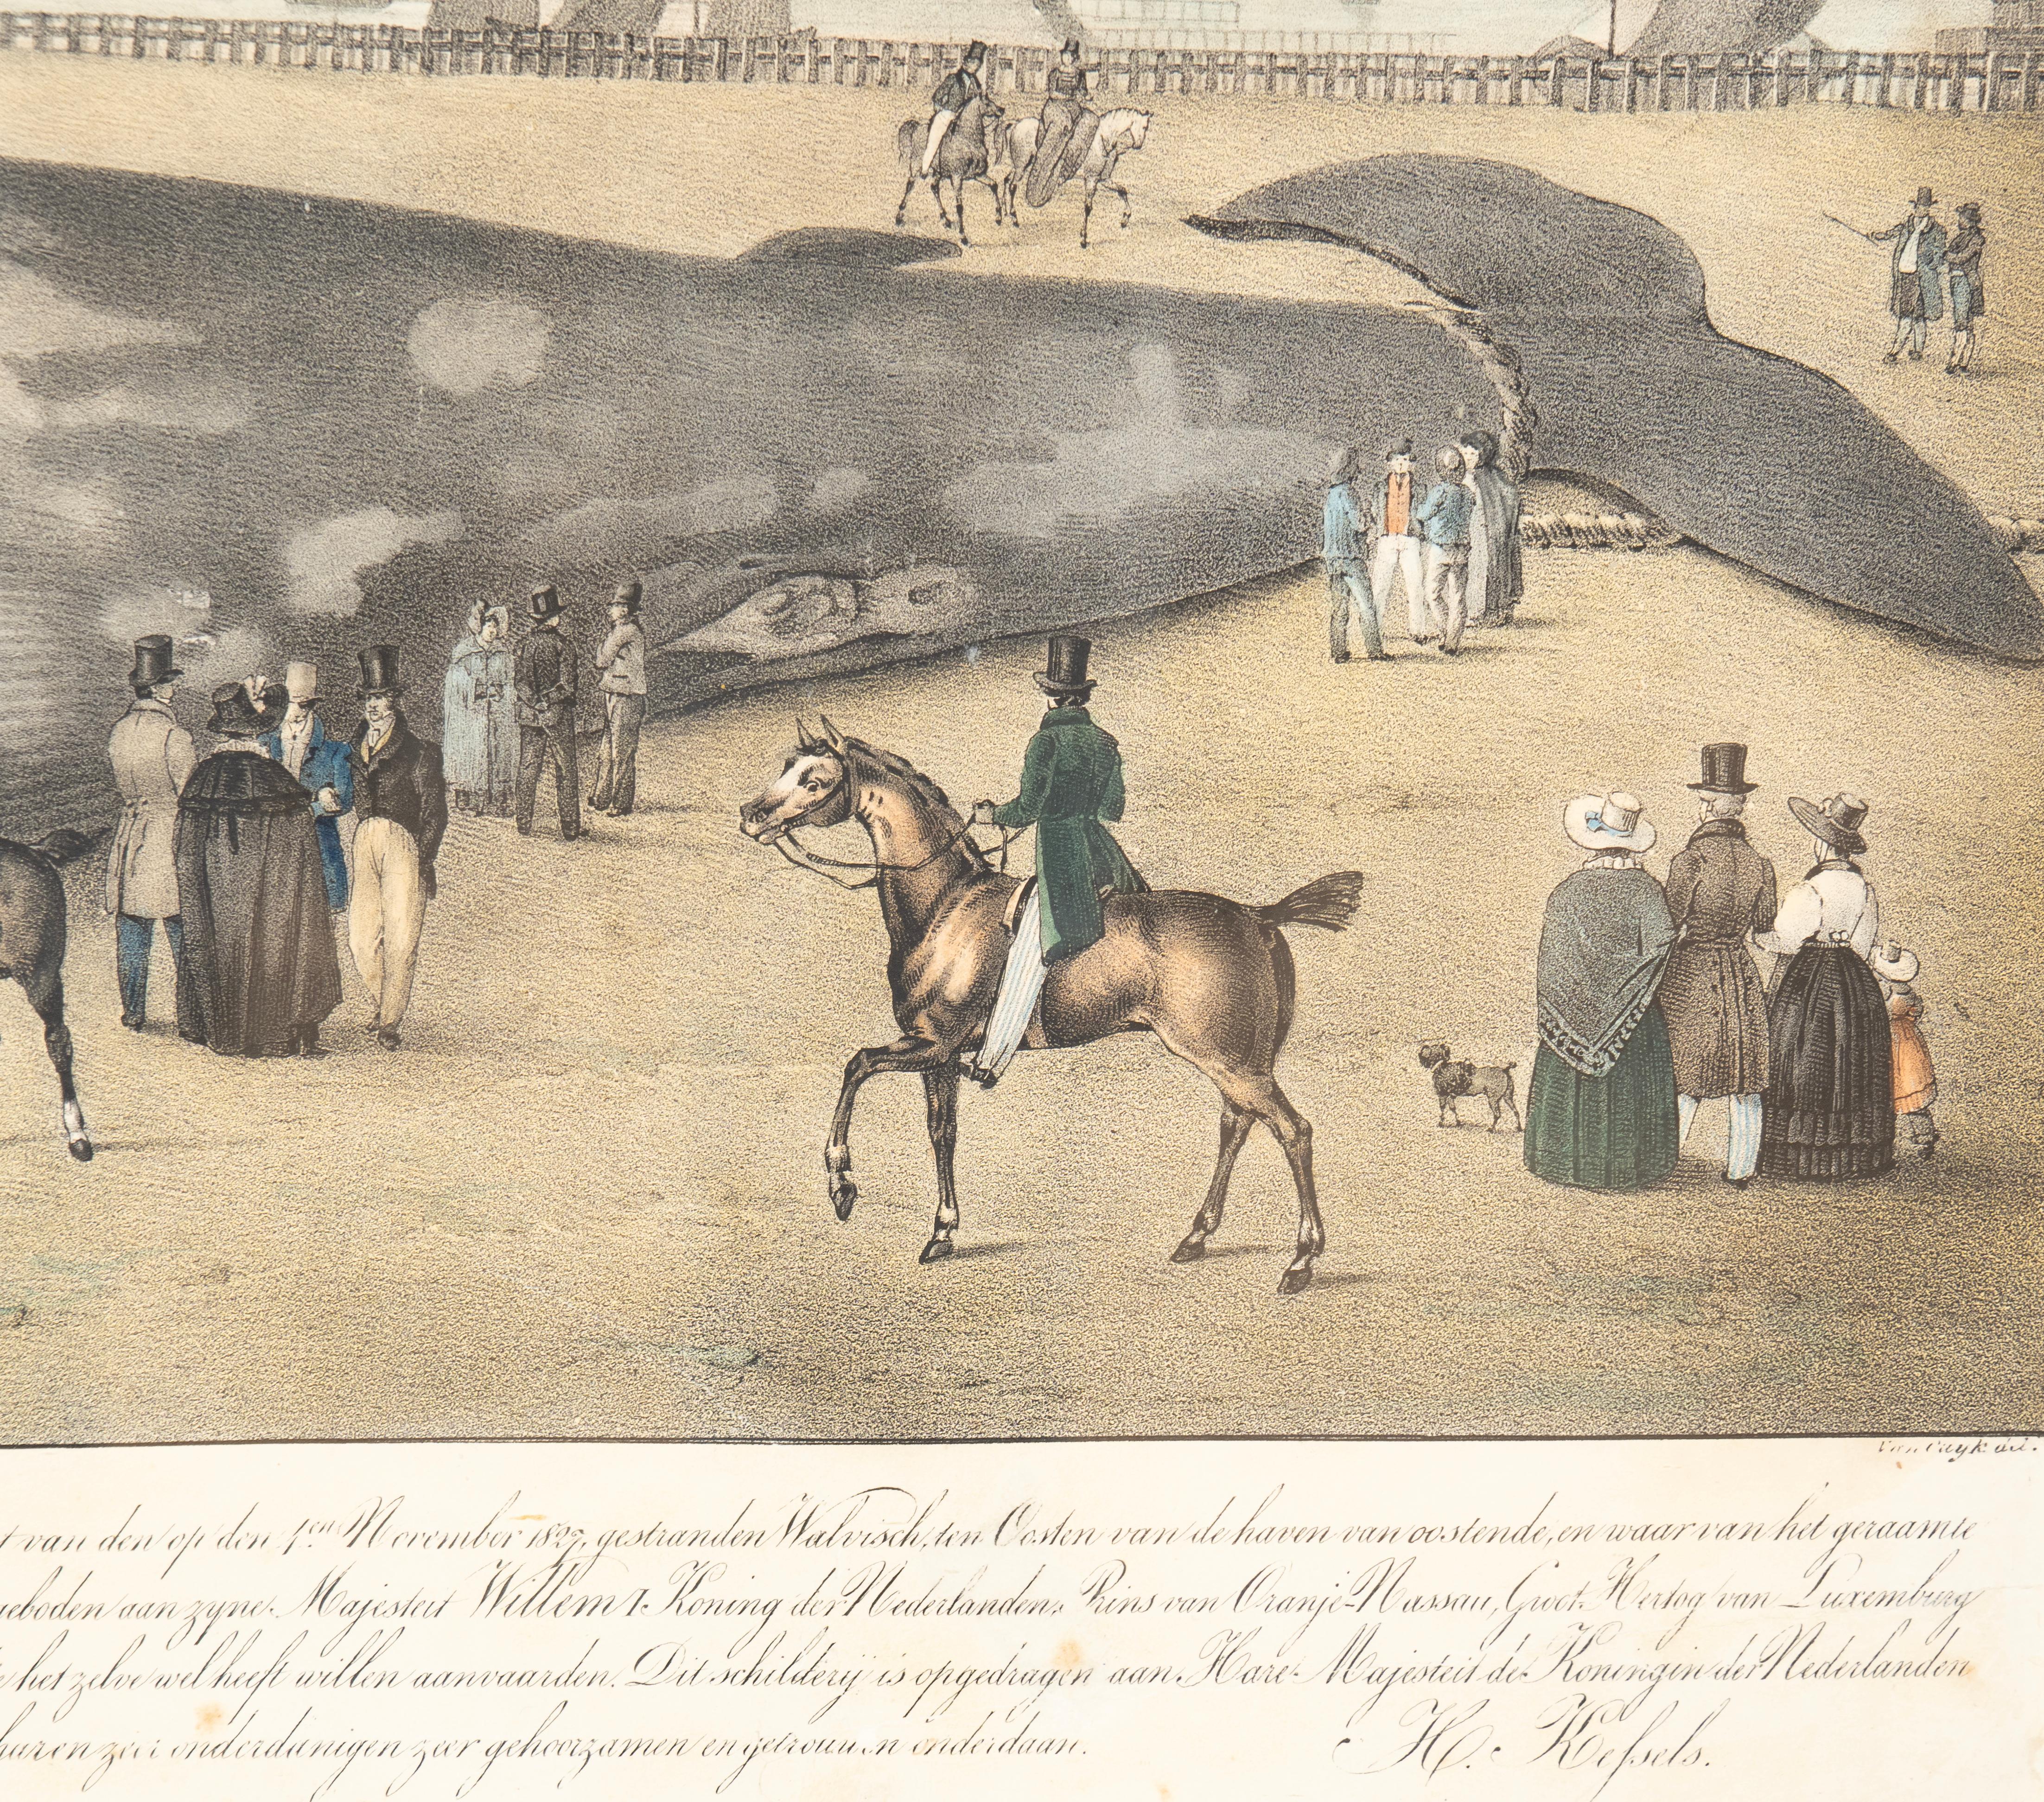 Van Cuyk del.
t van den op den 4.en November 1827, gestranden Walvisch, ten Oosten van de haven van oostende, en waar van het geraamte
geboden aan zyne Majesteit Willem I. Koning der Nederlanden, Prins van Oranje-Nassau, Groot-Hertog van Luxemburg
e het zelve wel heeft willen aanvaarden. Dit schilderij is opgedragen aan Hare Majesteit de Koningin der Nederlanden
huren zeer onderdanigen zeer gehoorzamen en getrouwen onderdaan.
H. Kefsels.